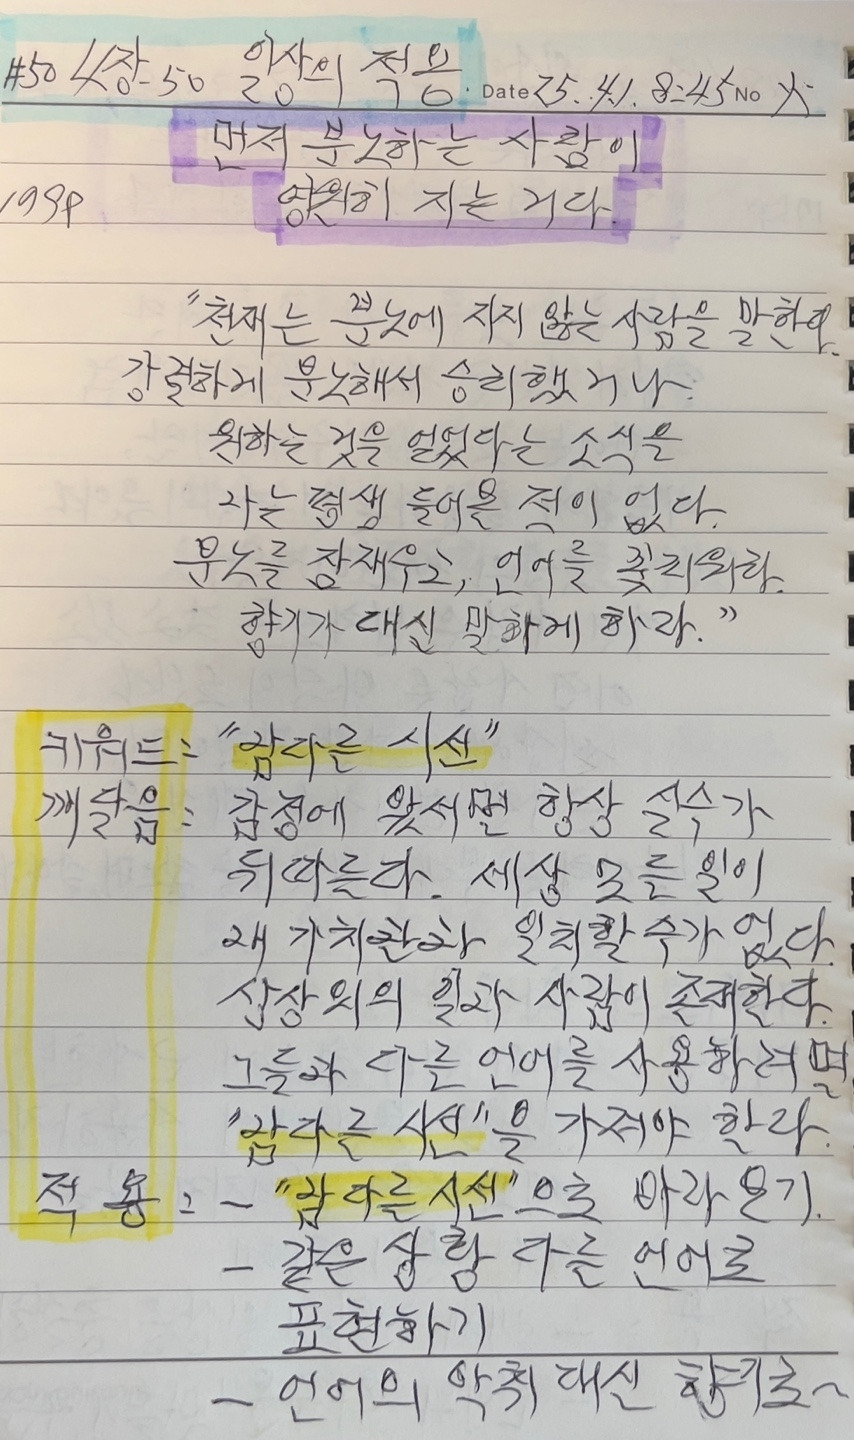 #50 낫장-50 일상의 적용. Date 25.4.1. 8:45 No 火
먼저 분노하는 사람이
199P 영원히 지는 거다.
"천재는 분노에 지지 않는 사람을 말한다.
강렬하게 분노해서 승리했거나
원하는 것을 얻었다는 소식을
나는 평생 들어본 적이 없다.
분노를 잠재우고, 언어를 꽃피워라.
향기가 대신 말하게 하라."
키워드 = "남다른 시선"
깨달음 = 감정에 앞서면 항상 실수가
뒤따른다. 세상 모든 일이
내 가치관과 일치할 수가 없다.
상상외의 일과 사람이 존재한다.
그들과 다른 언어를 사용하려면
"남다른 시선"을 가져야 한다.
적 용 = - "남다른 시선"으로 바라보기.
- 같은 상황 다른 언어로
표현하기
- 언어의 악취 대신 향기로~